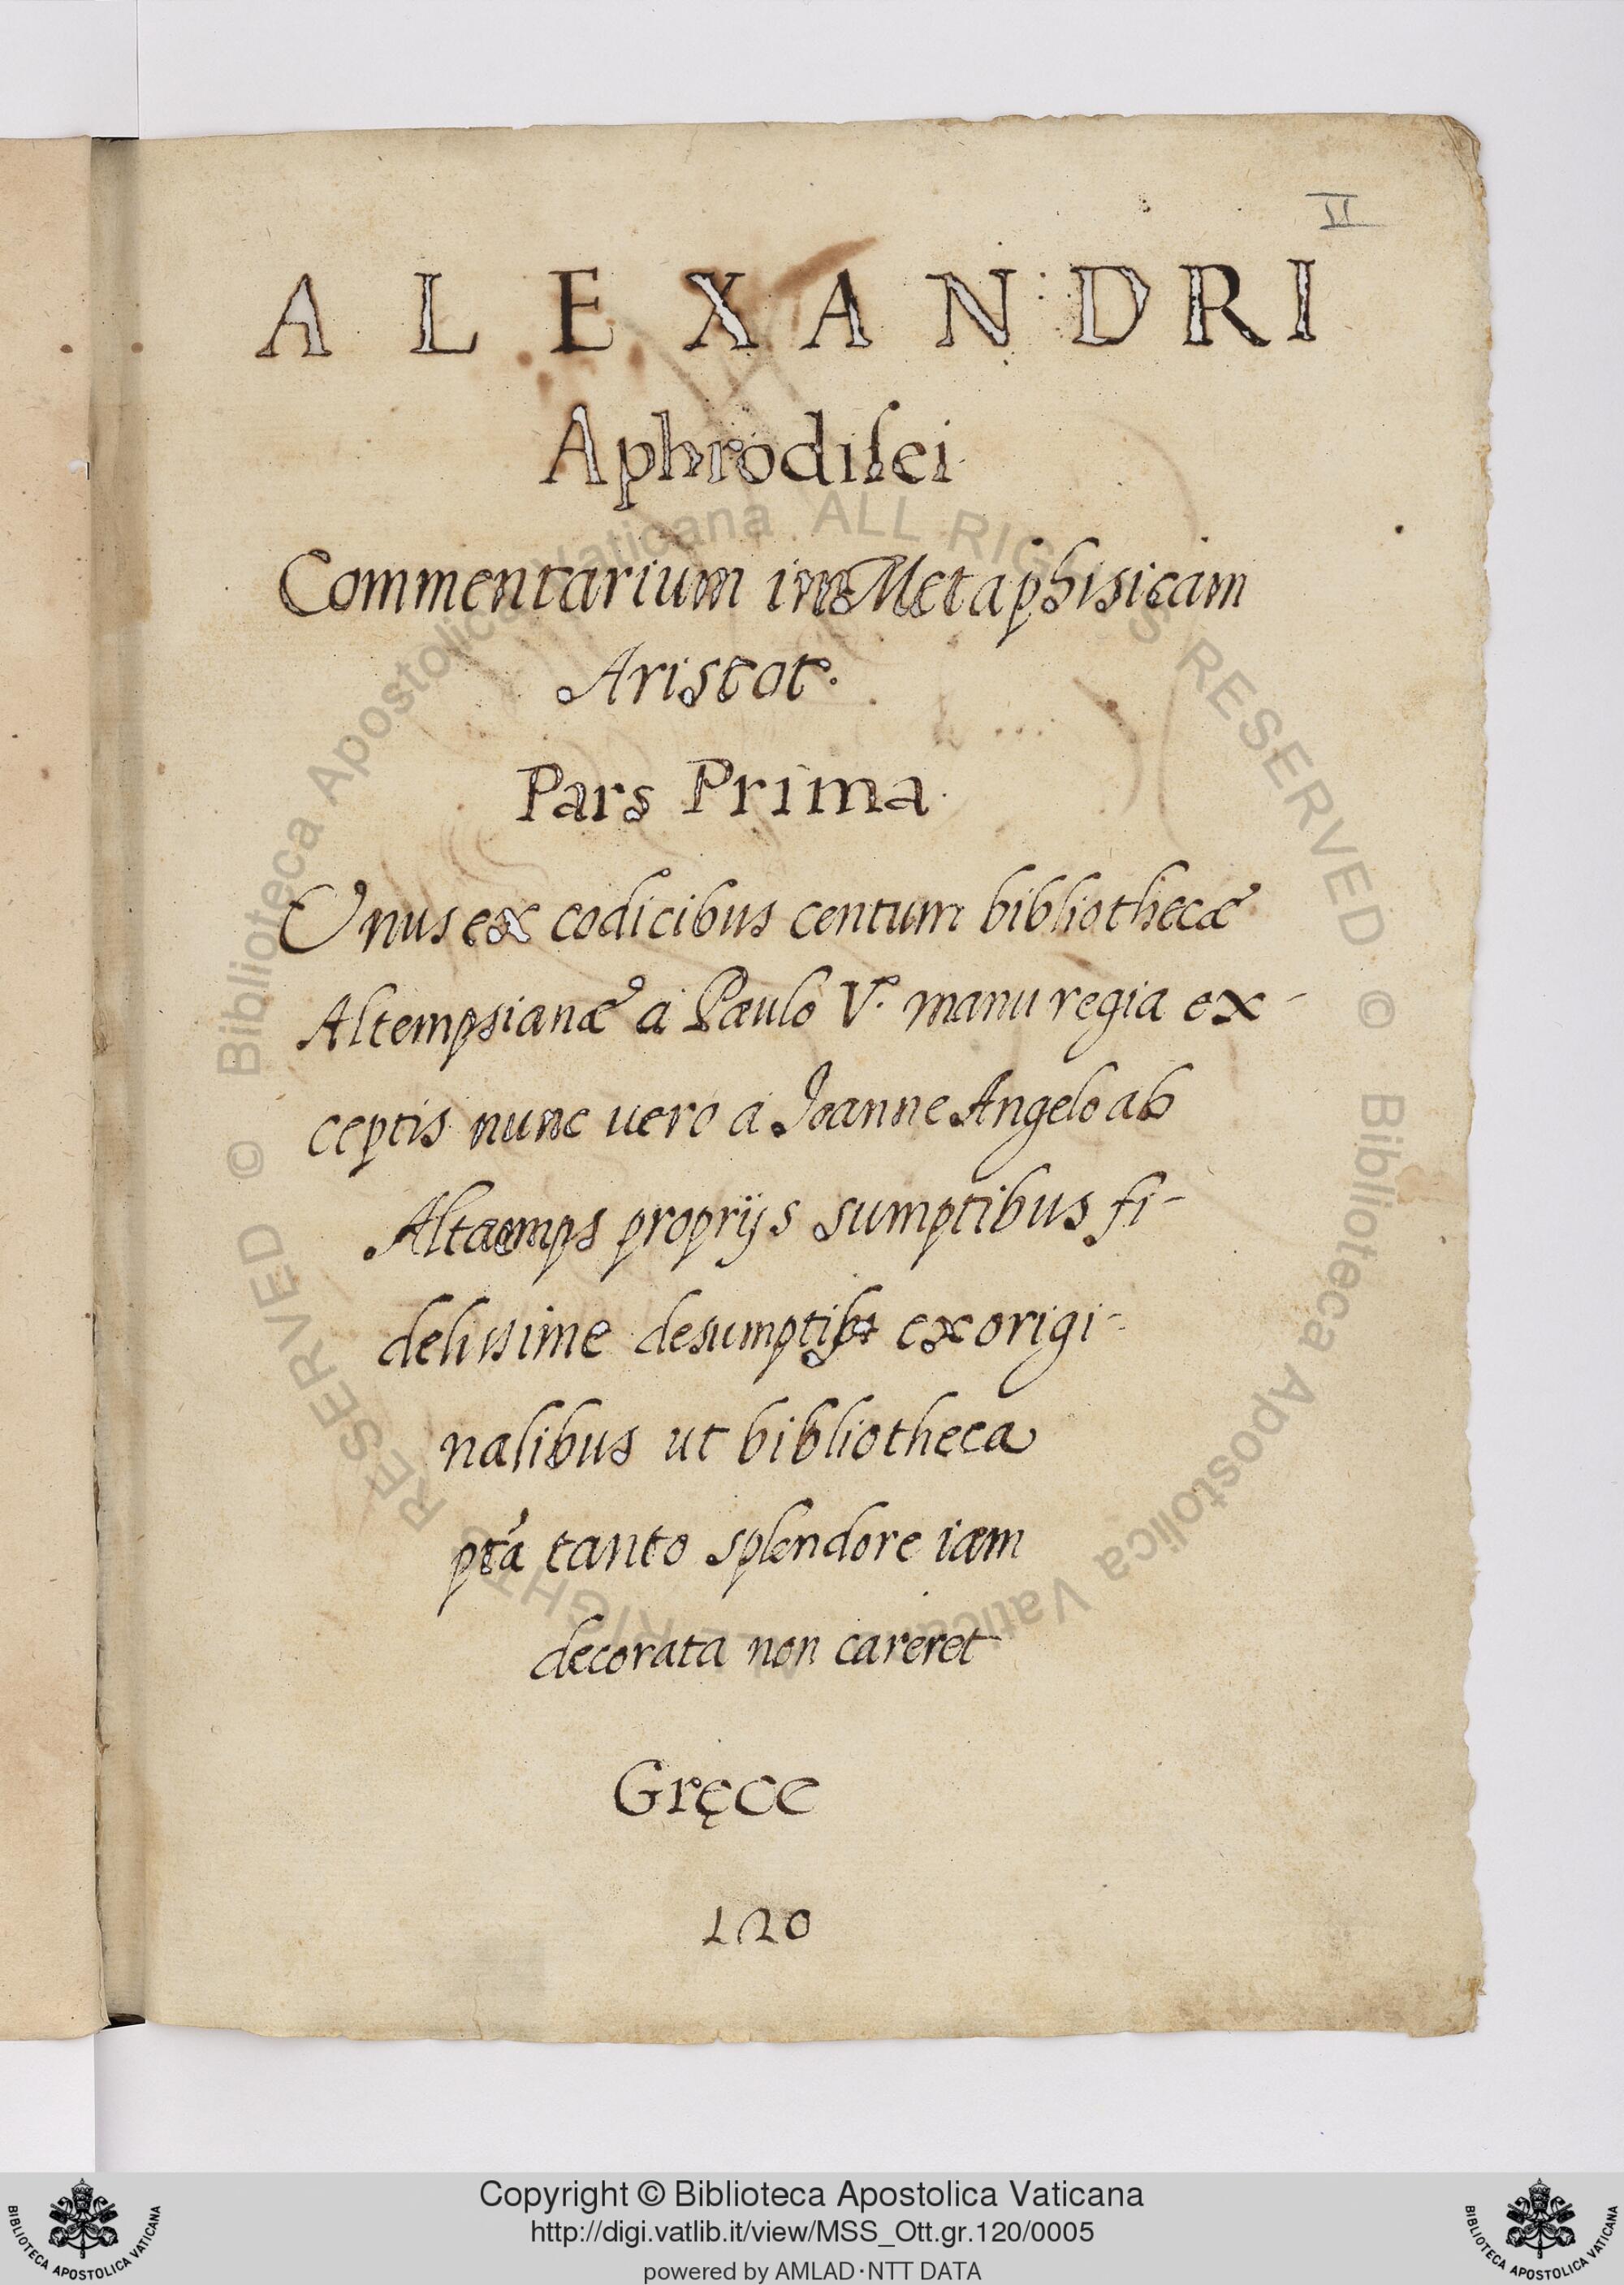 II
ALEXANDRI
Aphrodisei
Commentarium in Metaphisicam
Aristot.
Pars Prima
Unus ex codicibus centum bibliothecæ
Altempsianæ a Paulo V. manu regia ex-
ceptis nunc uero a Joanne Angelo ab
Altaemps proprijs sumptibus fi-
delissime ex origi-
nalibus ut bibliotheca
pta tanto splendore iam
decorata non careret
Gręce
120
© Biblioteca Apostolica Vaticana ALL RIGHTS RESERVED © Biblioteca Apostolica Vaticana ALL RIGHTS RESERVED
Copyright © Biblioteca Apostolica Vaticana
http://digi.vatlib.it/view/MSS_Ott.gr.120/0005
powered by AMLAD·NTT DATA
BIBLIOTECA APOSTOLICA VATICANA
BIBLIOTECA APOSTOLICA VATICANA